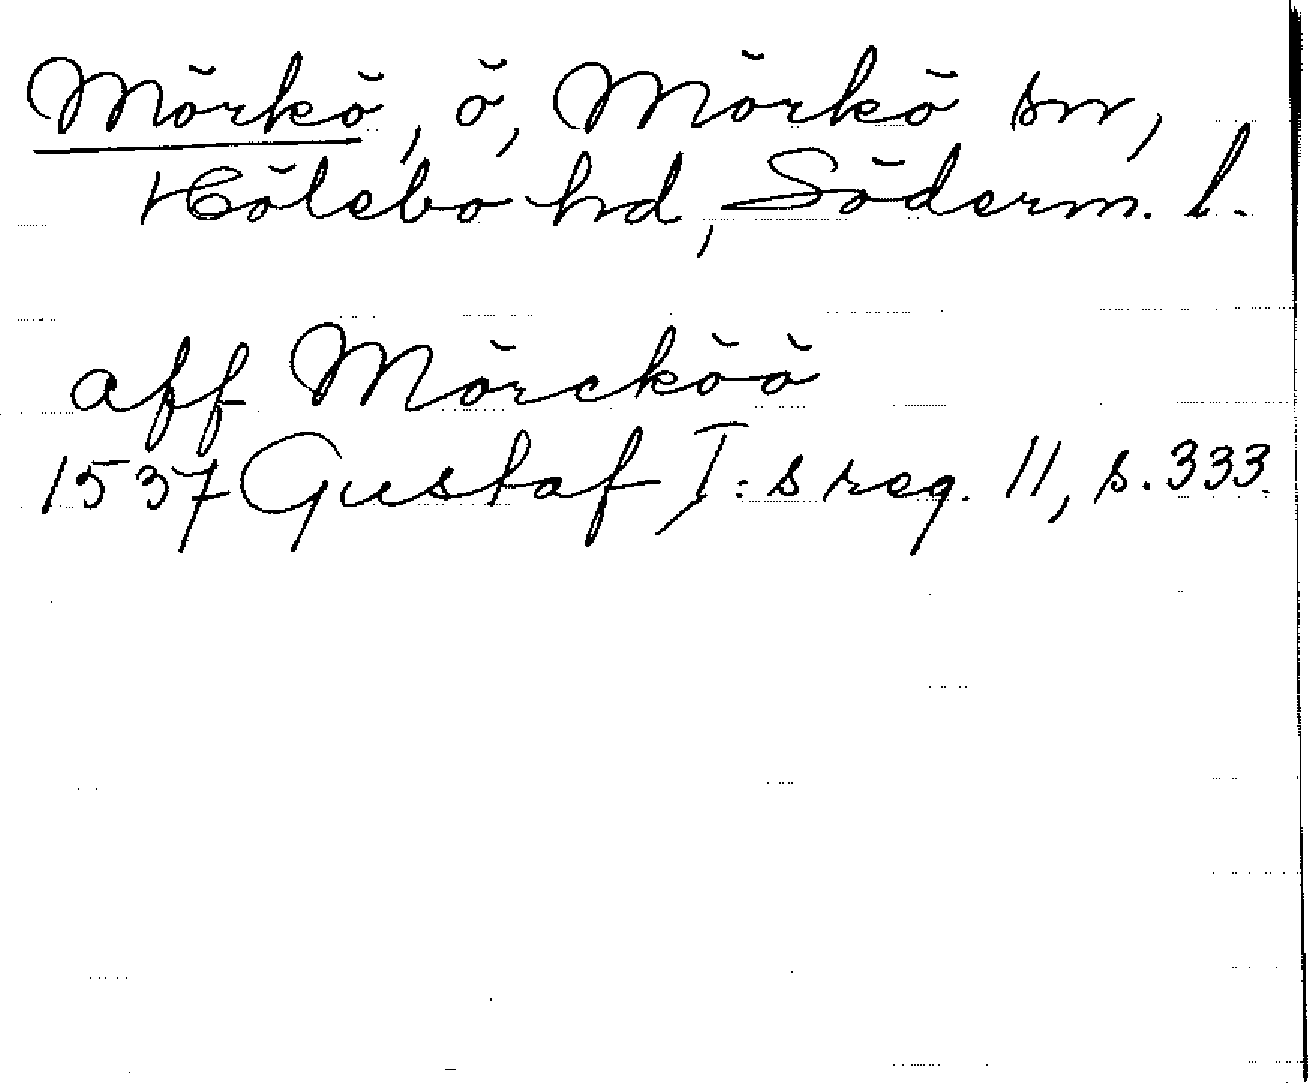 Mörkö, ö, Mörkö sn,
Hölebo hd, Söderm. l.
aff Mörcköö
1537 Gustaf I:s reg. 11, s. 333.